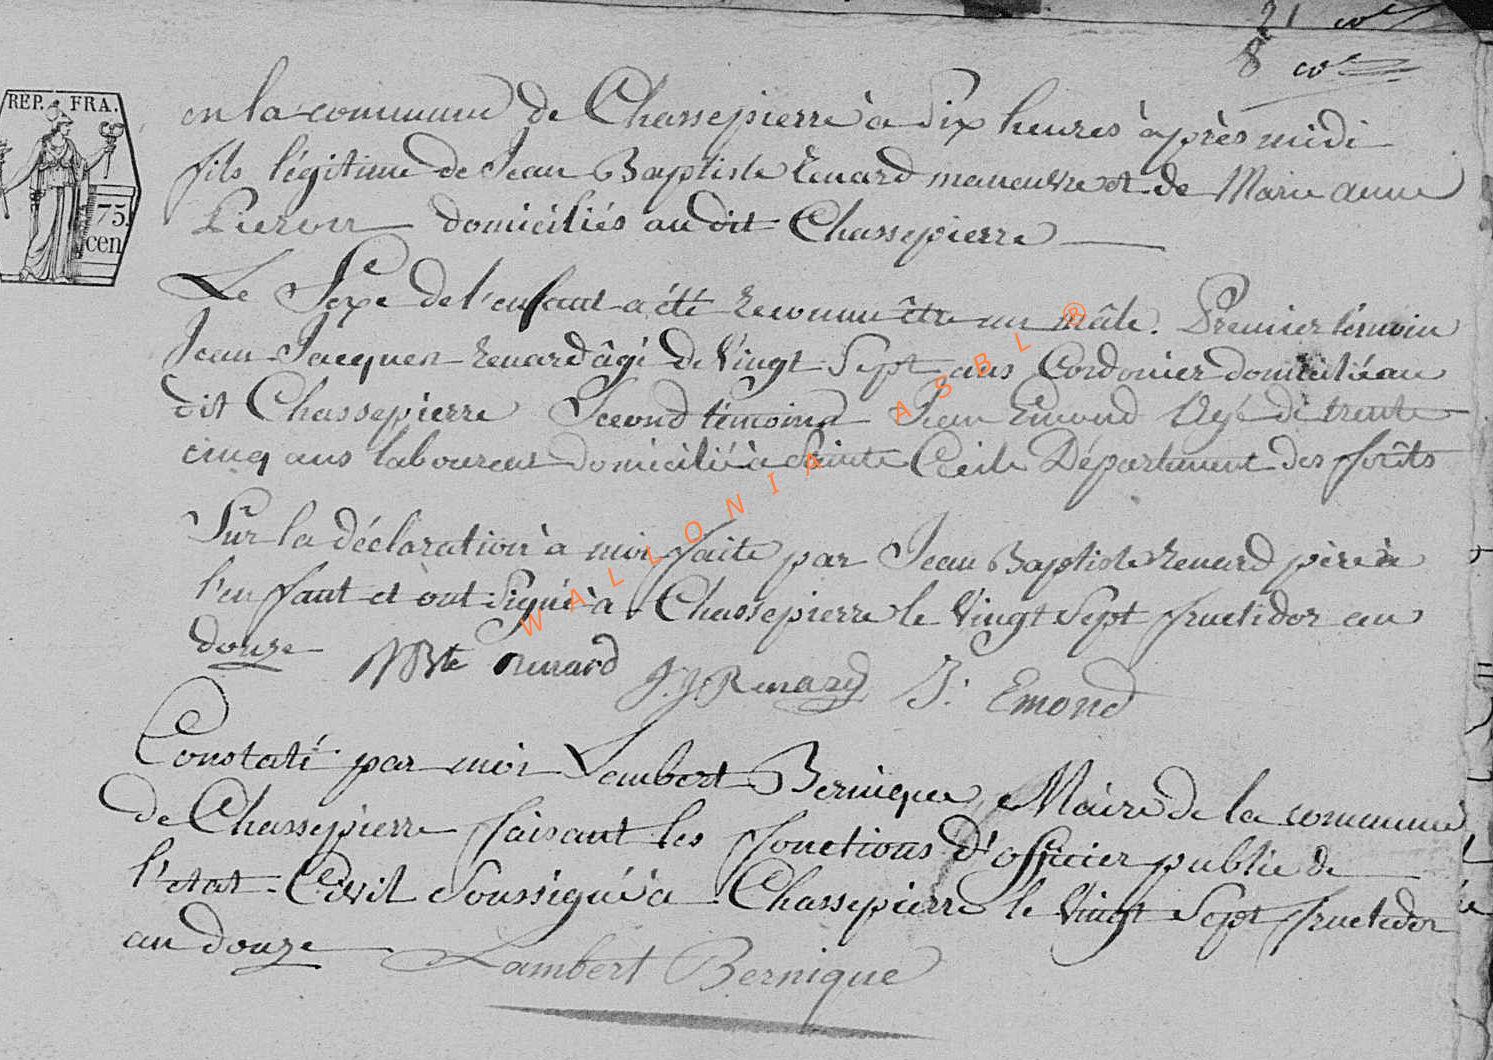 21 wt
8 wt
REP. FRA.
75.
cen
en la commune de Chassepierre à Six heures après midi
fils légitime de Jean Baptiste Renard maneuvre et de Marie anne
Pieron domiciliés au dit Chassepierre
Le Sexe de l'enfant a été Reconnu être un mâle. Premier témoin
Jean Jacques Renard âgé de Vingt Sept ans Cordonier domicilié au
dit Chassepierre Second témoins Jean Emond Agé de trente
cinq ans laboureur domicilié à Sainte Cécile Département des forêts
Sur la déclaration à moi faite par Jean Baptiste Renard père à
l'enfant et ont Signé à Chassepierre le Vingt Sept fructidor an
douze JBte renard J.J Renard J. Emond
Constaté par moi Lambert Bernique Maire de la commune
de Chassepierre faisant les fonctions d'officier public de
l'etat Civil Soussigné à Chassepierre le Vingt Sept fructidor
an douze Lambert Bernique
WALLONIA ASBL ®